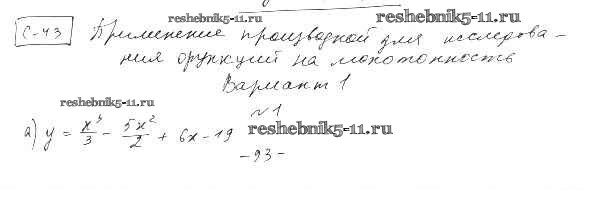 reshebnik5-11.ru reshebnik5-11.ru
С-43 Применение производной для исследова-
ния функций на монотонность
Вариант 1
reshebnik5-11.ru
№1
а) y = x³/3 - 5x²/2 + 6x - 19 reshebnik5-11.ru
-93-